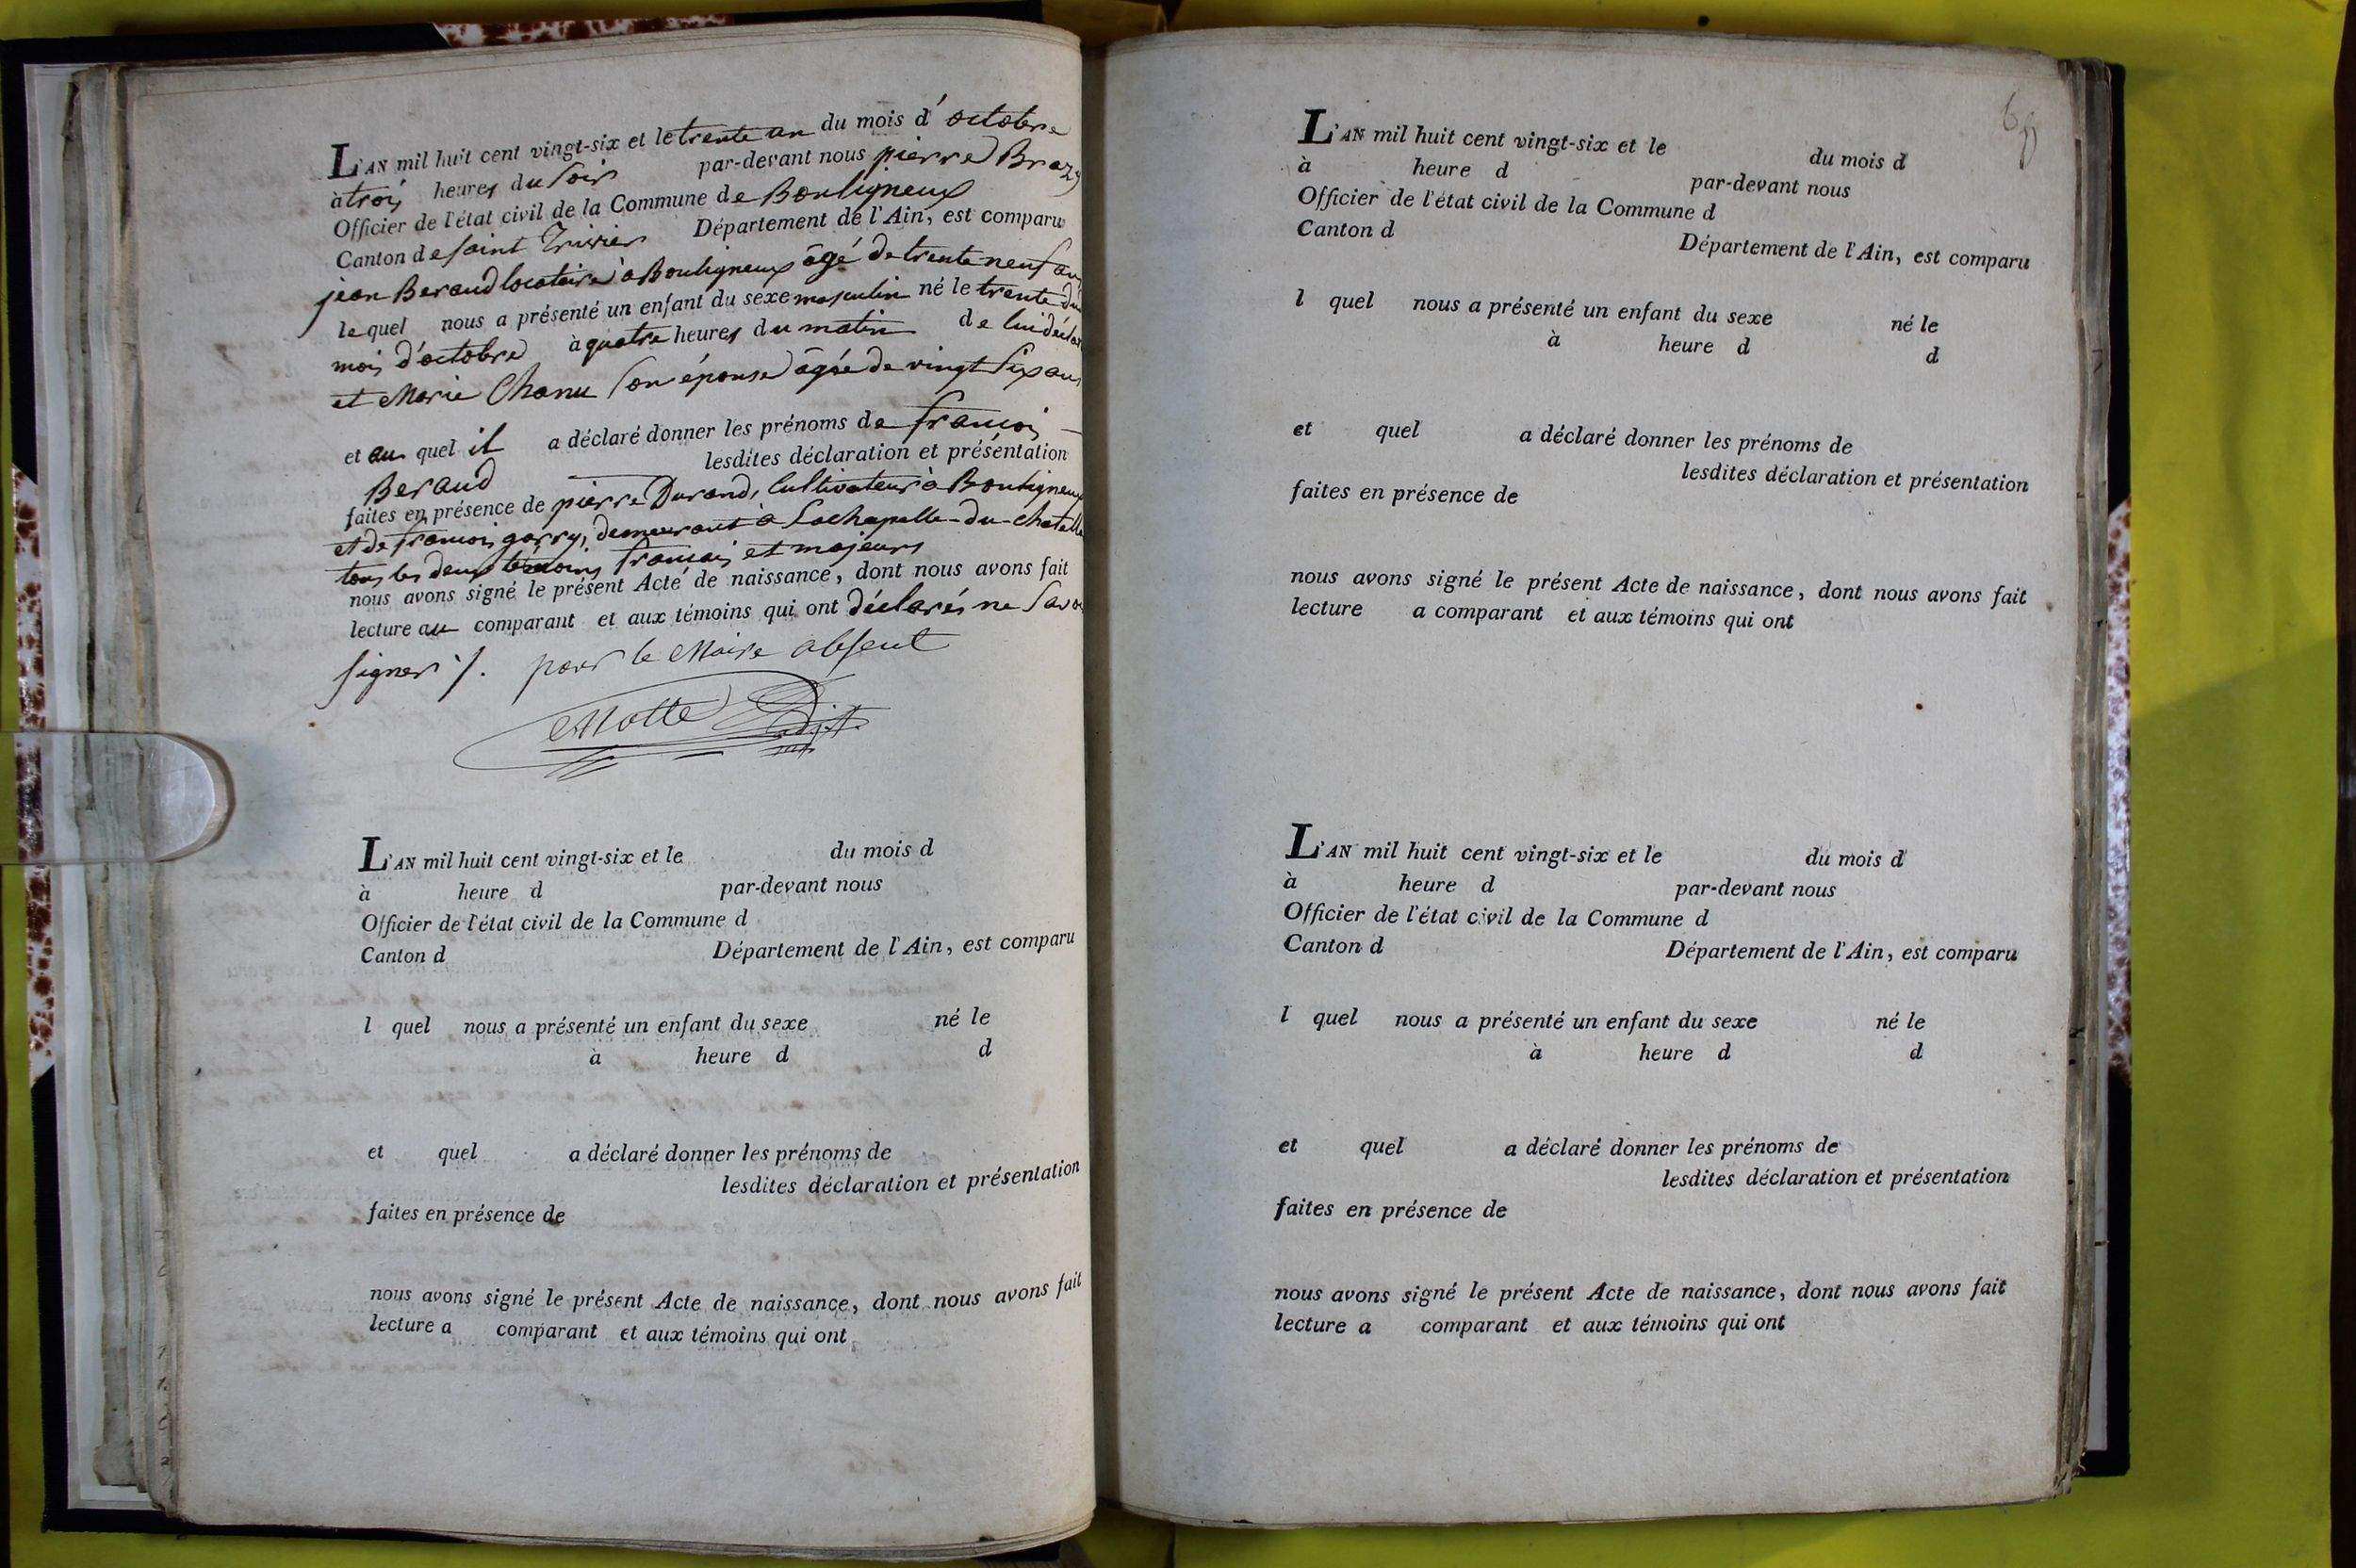 L'AN mil huit cent vingt-six et le trente un du mois d'octobre
à trois heures du soir par-devant nous pierre Brazy
Officier de l'état civil de la Commune de Bouligneux
Canton de saint Trivier Département de l'Ain, est comparu
jean Beraud locataire à Bouligneux âgé de trente neuf ans
lequel nous a présenté un enfant du sexe masculin né le trente du
mois d'octobre à quatre heures du matin de lui déclarant
et Marie Chanu son épouse âgée de vingt six ans
et au quel il a déclaré donner les prénoms de francois
Beraud lesdites déclaration et présentation
faites en présence de pierre Durand, Cultivateur à Bouligneux
et de francois garry, demeurant à Lachapelle-du-chatelle
tous les deux témoins francais et majeurs
nous avons signé le présent Acte de naissance, dont nous avons fait
lecture au comparant et aux témoins qui ont déclarés ne savoir
signer ./. pour le Maire absent
Motte adjt
L'AN mil huit cent vingt-six et le du mois d
à heure d par-devant nous
Officier de l'état civil de la Commune d
Canton d Département de l'Ain, est comparu
l quel nous a présenté un enfant du sexe né le
à heure d d
et quel a déclaré donner les prénoms de
lesdites déclaration et présentation
faites en présence de
nous avons signé le présent Acte de naissance, dont nous avons fait
lecture a comparant et aux témoins qui ont
L'AN mil huit cent vingt-six et le du mois d
à heure d par-devant nous
Officier de l'état civil de la Commune d
Canton d Département de l'Ain, est comparu
l quel nous a présenté un enfant du sexe né le
à heure d d
et quel a déclaré donner les prénoms de
lesdites déclaration et présentation
faites en présence de
nous avons signé le présent Acte de naissance, dont nous avons fait
lecture a comparant et aux témoins qui ont
L'AN mil huit cent vingt-six et le du mois d
à heure d par-devant nous
Officier de l'état civil de la Commune d
Canton d Département de l'Ain, est comparu
l quel nous a présenté un enfant du sexe né le
à heure d d
et quel a déclaré donner les prénoms de
lesdites déclaration et présentation
faites en présence de
nous avons signé le présent Acte de naissance, dont nous avons fait
lecture a comparant et aux témoins qui ont